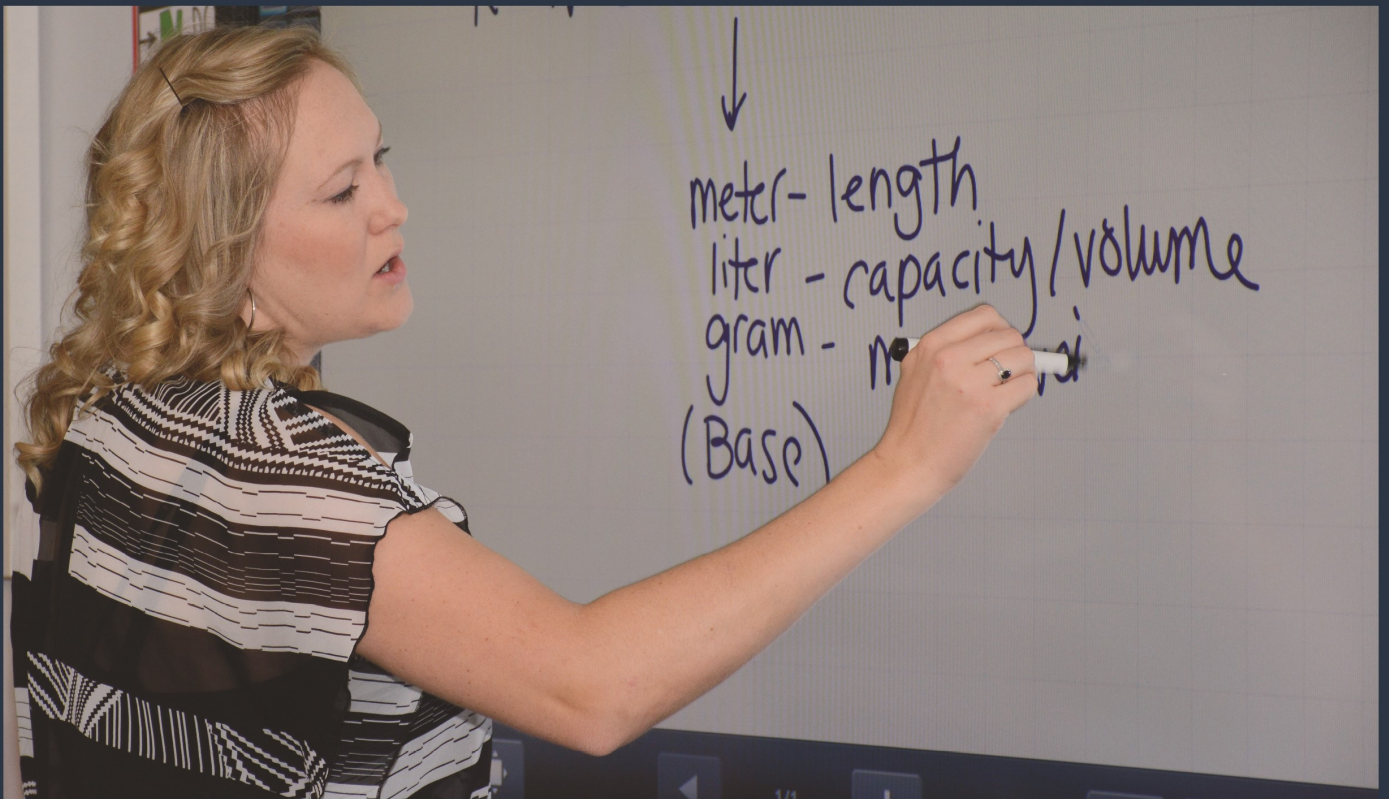 meter - length
liter - capacity/volume
gram -
(Base)
1/1